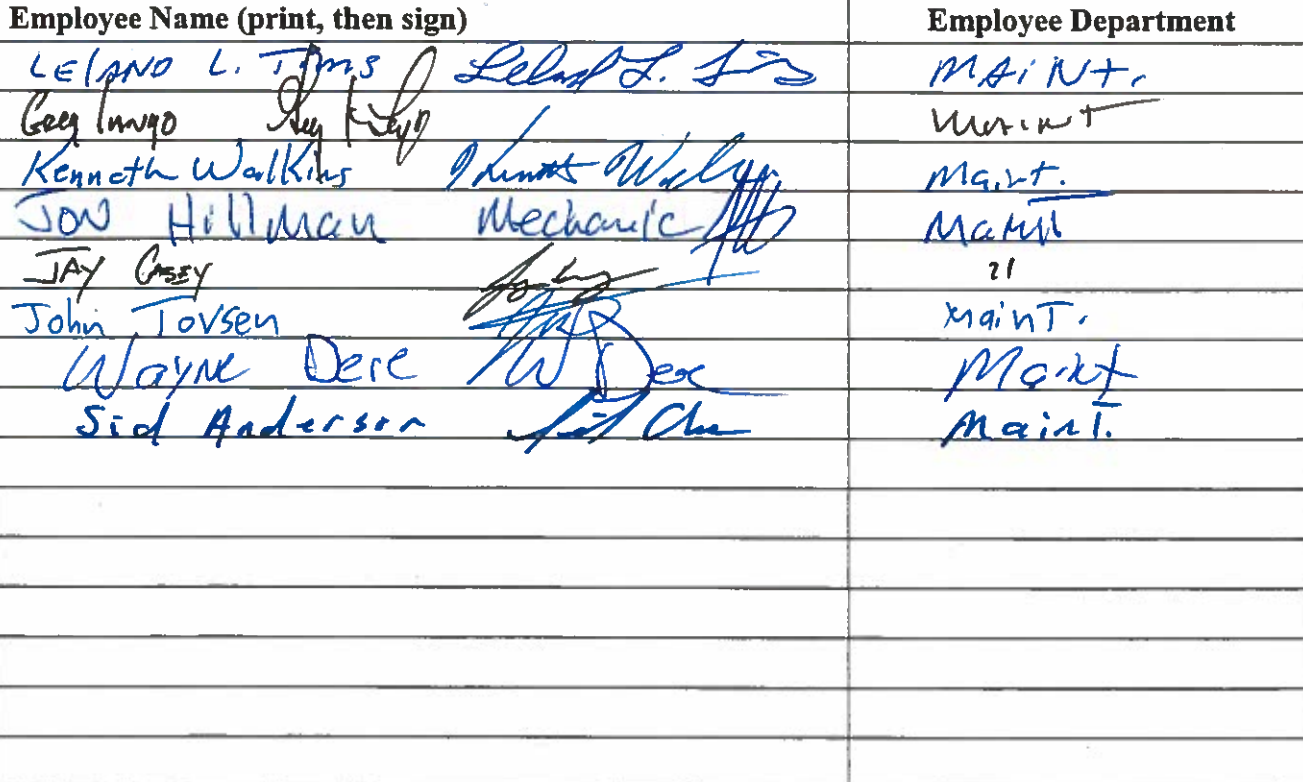 Employee Name (print, then sign) Employee Department
LELAND L. Tims Leland L. Tims MAiNt.
Greg Maint
Kenneth Walkins Kenneth Maint.
JON Hillman Mechanic Maint
JAY CASEY "
John Tovsen MainT.
Wayne Dere W Dere Maint
Sid Anderson Sid MainT.